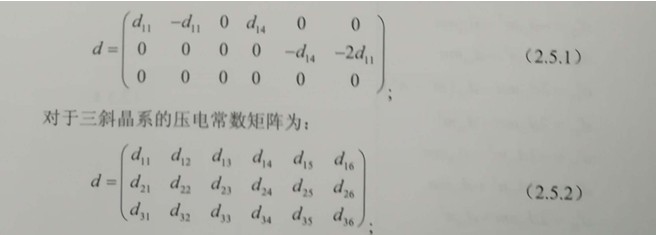 d = ( d₁₁ −d₁₁ 0 d₁₄ 0 0
0 0 0 0 −d₁₄ −2d₁₁
0 0 0 0 0 0 ) ; （2.5.1）
对于三斜晶系的压电常数矩阵为：
d = ( d₁₁ d₁₂ d₁₃ d₁₄ d₁₅ d₁₆
d₂₁ d₂₂ d₂₃ d₂₄ d₂₅ d₂₆
d₃₁ d₃₂ d₃₃ d₃₄ d₃₅ d₃₆ ) ; （2.5.2）